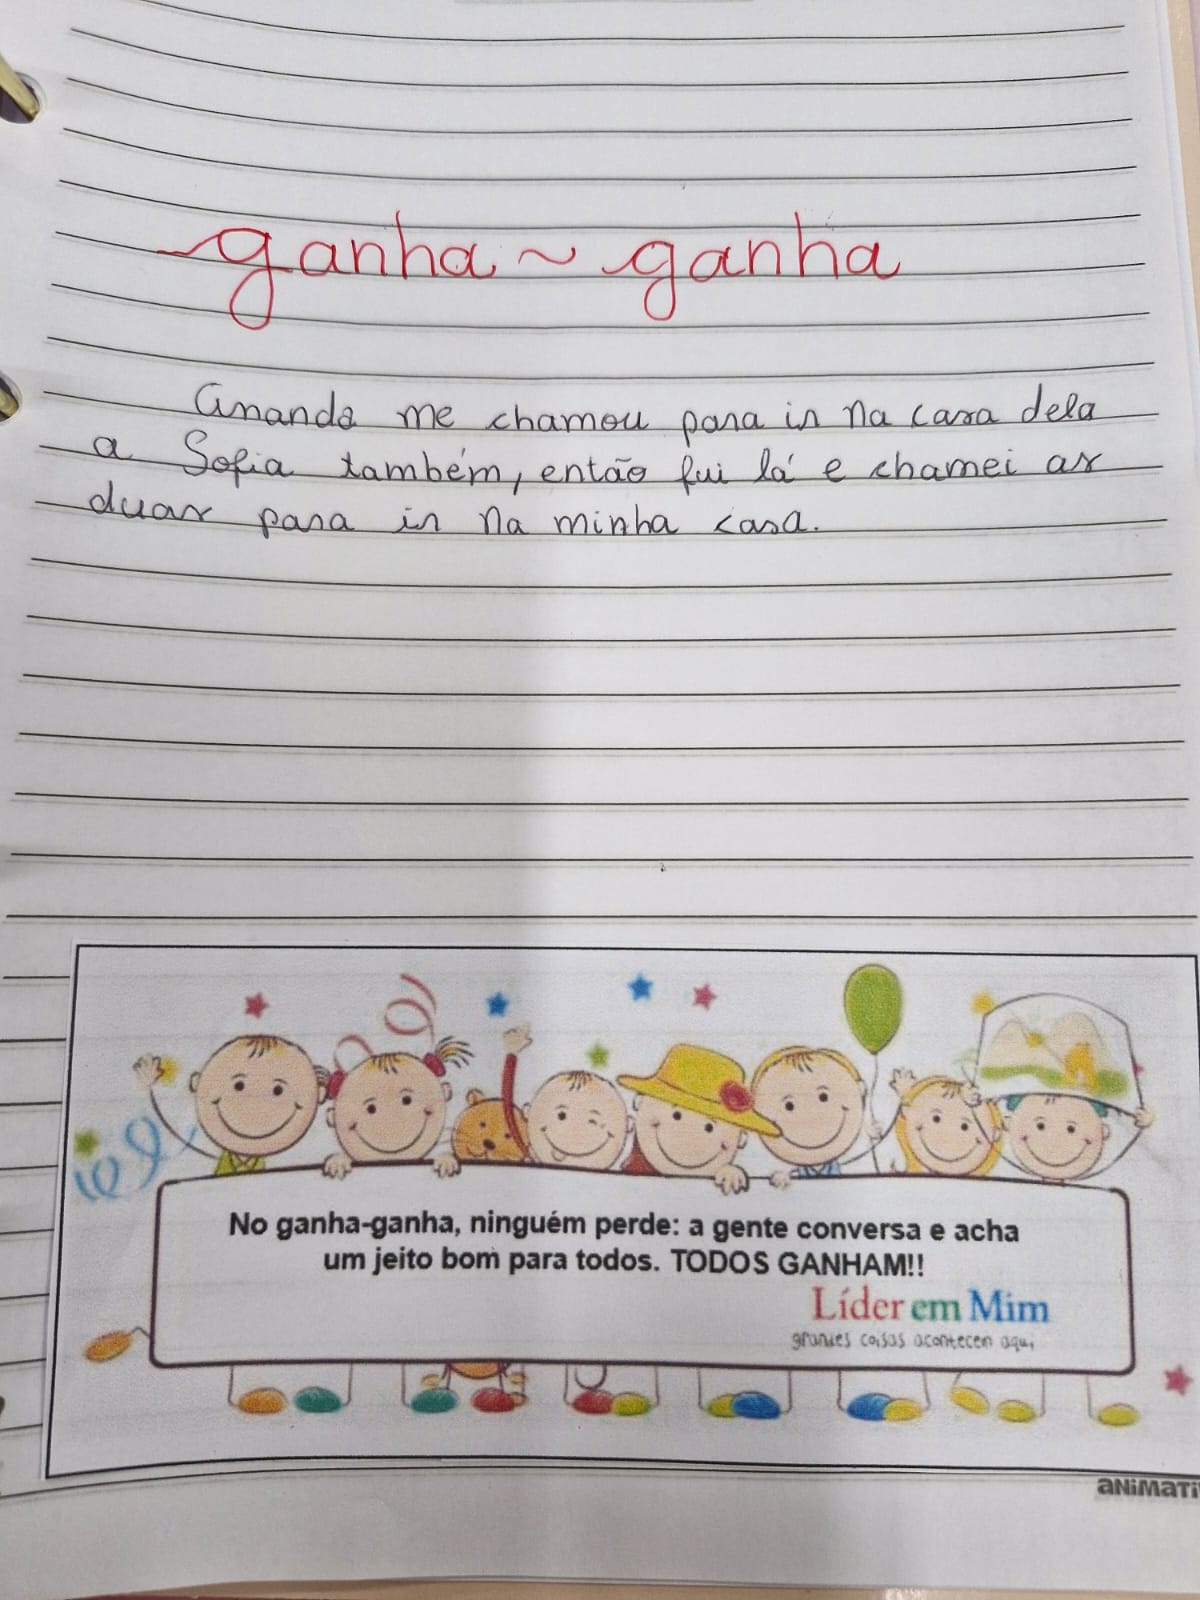 ganha ~ ganha
Ananda me chamou para ir na casa dela
a Sofia também, então fui lá e chamei as
duas para ir na minha casa.
No ganha-ganha, ninguém perde: a gente conversa e acha
um jeito bom para todos. TODOS GANHAM!!
Líder em Mim
grandes coisas acontecem aqui